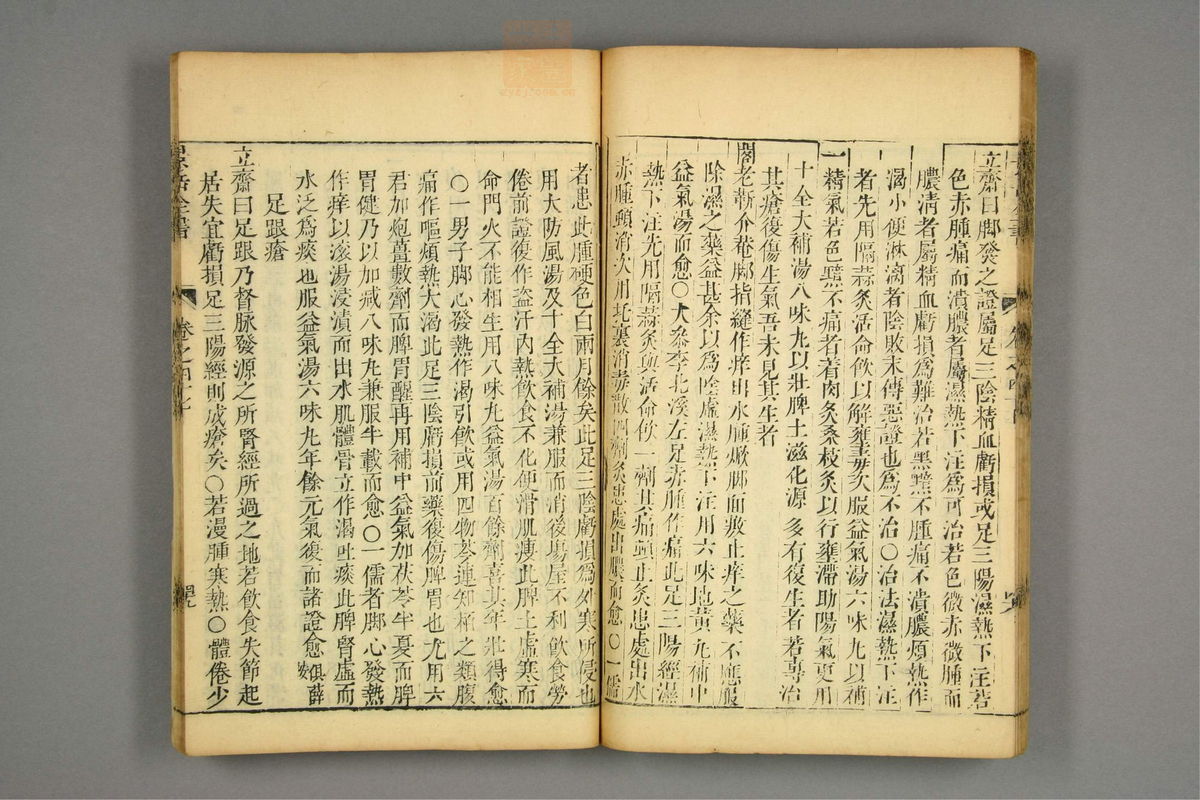 立齋曰脚發之證屬足三陰精血虧損或足三陽濕熱下注若
色赤腫痛而潰膿者屬濕熱下注為可治若色微赤微腫而
膿清者屬精血虧損為難治若黑黯不腫痛不潰膿煩熱作
渴小便淋漓者陰敗末傳惡證也為不治○治法濕熱下注
者先用隔蒜灸活命飲以解壅毒次服益氣湯六味丸以補
精氣若色黯不痛者着肉灸桑枝灸以行壅滯助陽氣更用
十全大補湯八味丸以壯脾土滋化源多有復生者若專治
其瘡復傷生氣吾未見其生者
閣老靳介菴脚指縫作痒出水腫焮脚面敷止痒之藥不應服
除濕之藥益甚余以為陰虛濕熱下注用六味地黃丸補中
益氣湯而愈○大叅李北溪左足赤腫作痛此足三陽經濕
熱下注先用隔蒜灸與活命飲一劑其痛頓止灸患處出水
赤腫頓消次用托裏消毒散四劑灸患處出膿而愈○一儒
者患此腫硬色白兩月餘矣此足三陰虧損為外寒所侵也
用大防風湯及十全大補湯兼服而消後塲屋不利飲食勞
倦前證復作盗汗內熱飲食不化便滑肌瘦此脾土虛寒而
命門火不能相生用八味丸益氣湯百餘劑喜其年壯得愈
○一男子脚心發熱作渴引飲或用四物芩連知栢之類腹
痛作嘔煩熱大渴此足三陰虧損前藥復傷脾胃也先用六
君加炮薑數劑而脾胃醒再用補中益氣加茯苓半夏而脾
胃健乃以加减八味丸兼服半載而愈○一儒者脚心發熱
作痒以滚湯浸漬而出水肌體骨立作渴吐痰此脾腎虛而
水泛為痰也服益氣湯六味丸年餘元氣復而諸證愈俱薛案
足跟瘡
立齋曰足跟乃督脉發源之所腎經所過之地若飲食失節起
居失宜虧損足三陽經則成瘡矣○若漫腫寒熱○體倦少
景岳全書 卷之四十七